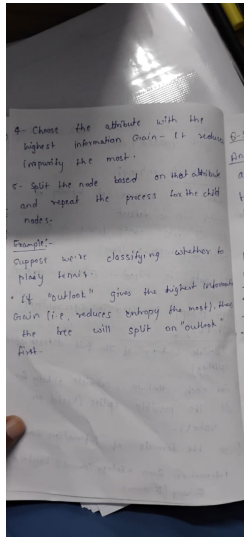 4- Choose the attribute with the
highest Information Gain - It reduces
impurity the most.
5- Split the node based on that attribute
and repeat the process for the child
nodes.
Example:-
Suppose we're classifying whether to
play tennis.
• If "outlook" gives the highest Information
Gain (i.e, reduces entropy the most), then
the tree will split on "outlook"
first.